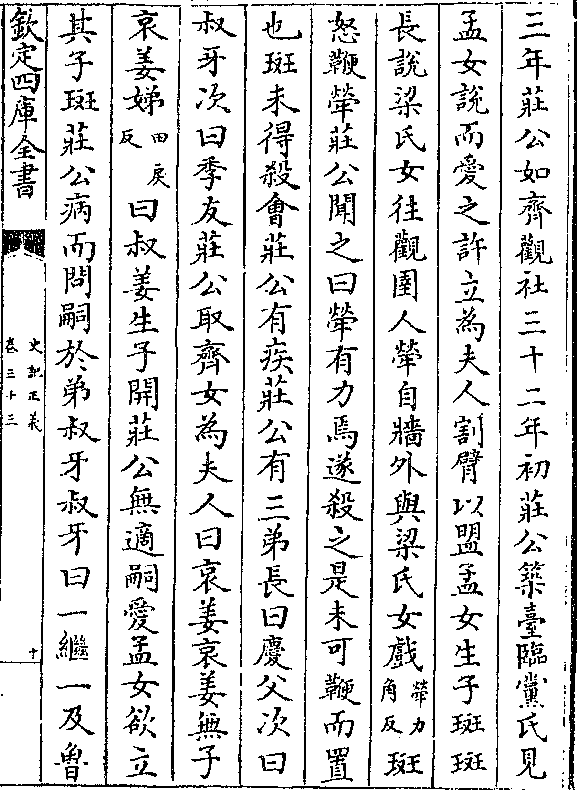 三年莊公如齊觀社三十二年初莊公築臺臨黨氏見
孟女說而愛之許立為夫人割臂以盟孟女生子斑斑
長說梁氏女往觀圉人犖自牆外與梁氏女戲犖力角反斑
怒鞭犖莊公聞之曰犖有力焉遂殺之是未可鞭而置
也斑未得殺會莊公有疾莊公有三弟長曰慶父次曰
叔牙次曰季友莊公取齊女為夫人曰哀姜哀姜無子
哀姜娣田戾反曰叔姜生子開莊公無適嗣愛孟女欲立
其子斑莊公病而問嗣於弟叔牙叔牙曰一繼一及魯
欽定四庫全書
史記正義
卷三十三
十